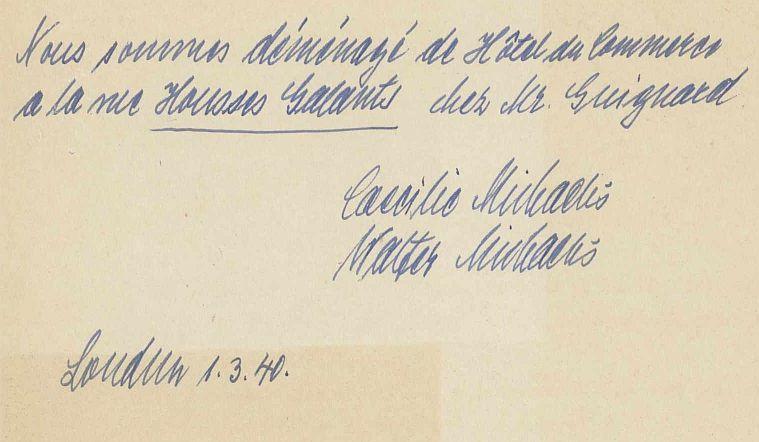 Nous sommes déménagé de Hôtel du Commerce
a la rue Housses Galants chez Mr. Guignard
Caecilie Michaelis
Walter Michaelis
Loudun 1.3.40.